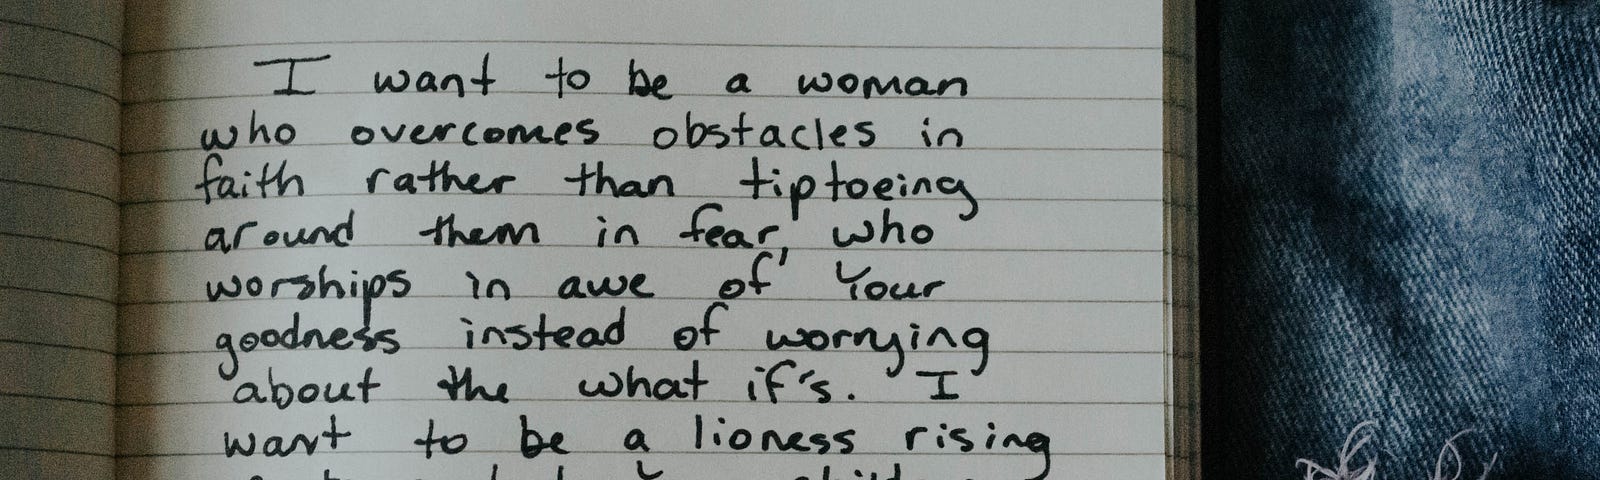 I want to be a woman
who overcomes obstacles in
faith rather than tiptoeing
around them in fear, who
worships in awe of Your
goodness instead of worrying
about the what if's. I
want to be a lioness rising